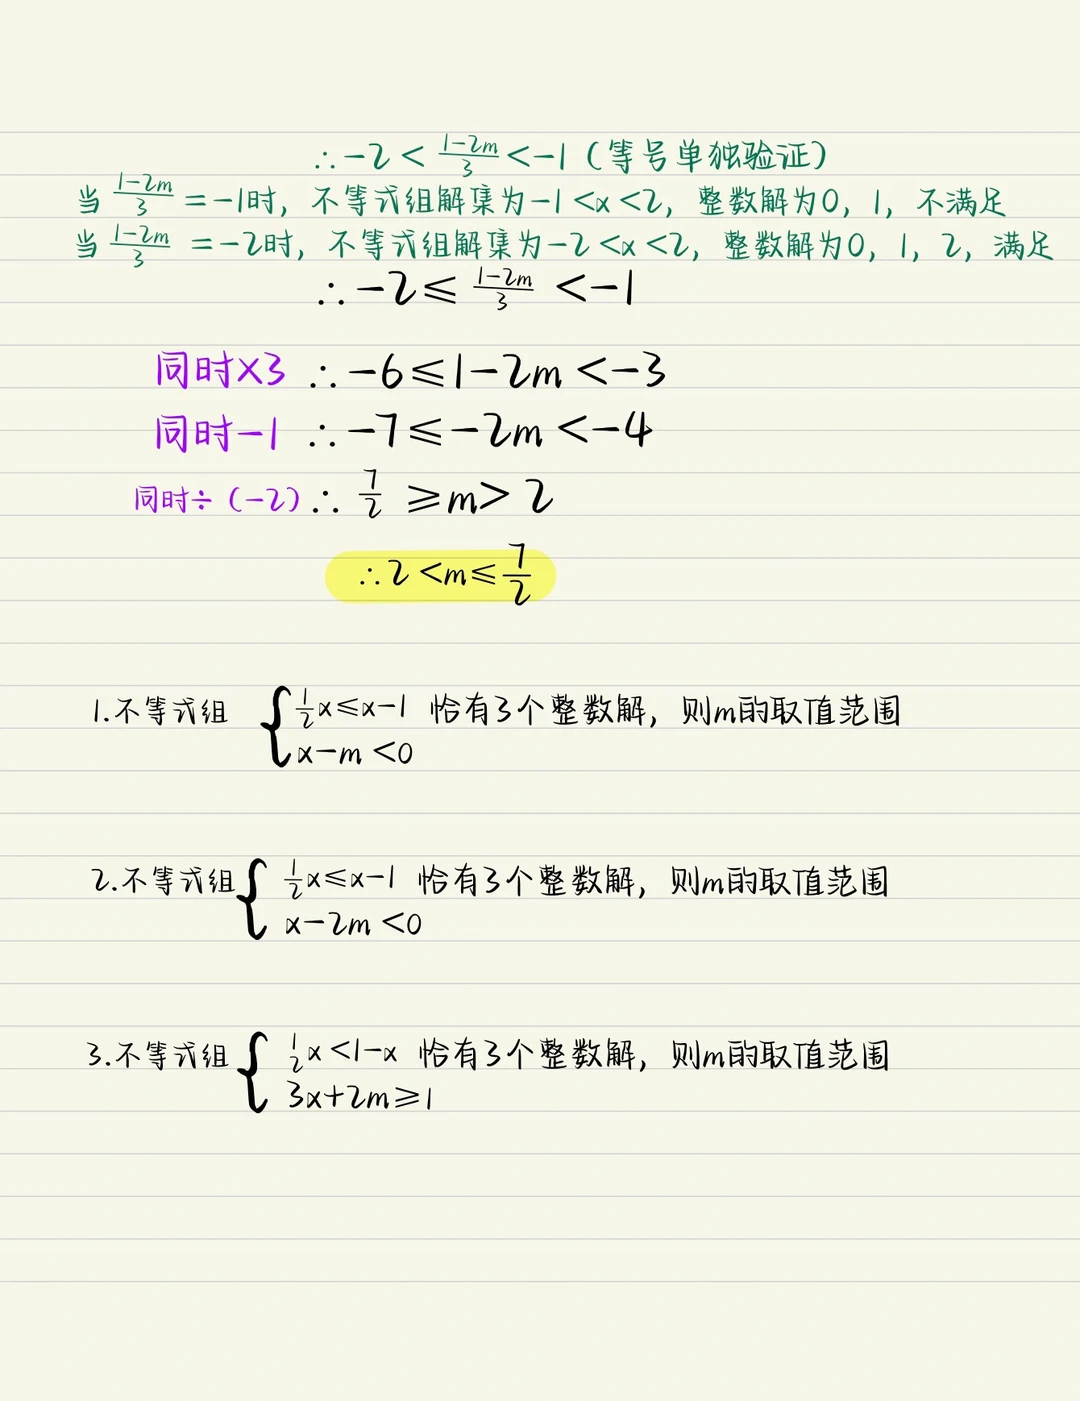 ∴-2<(1-2m)/3<-1(等号单独验证)
当(1-2m)/3=-1时,不等式组解集为-1<x<2,整数解为0,1,不满足
当(1-2m)/3=-2时,不等式组解集为-2<x<2,整数解为0,1,2,满足
∴-2≤(1-2m)/3<-1
同时×3 ∴-6≤1-2m<-3
同时-1 ∴-7≤-2m<-4
同时÷(-2)∴7/2≥m>2
∴2<m≤7/2
1.不等式组{1/2x≤x-1 恰有3个整数解,则m的取值范围
x-m<0
2.不等式组{1/2x≤x-1 恰有3个整数解,则m的取值范围
x-2m<0
3.不等式组{1/2x<1-x 恰有3个整数解,则m的取值范围
3x+2m≥1